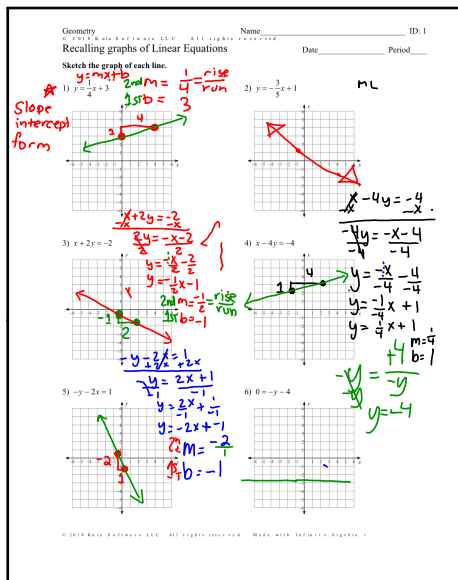 Geometry Name ID: 1
© 2018 Kuta Software LLC. All rights reserved.
Recalling graphs of Linear Equations Date Period
Sketch the graph of each line.
y=mx+b
1) y = 1/4 x + 3
2nd m = 1/4 = rise/run
1st b = 3
Slope
intercept
form
1
4
2) y = -3/5 x + 1
ML
x+2y=-2
-x -x
2y/2 = -x-2/2
y = -x/2 - 2/2
y = -1/2 x - 1
2nd m = -1/2 = rise/run
1st b = -1
3) x + 2y = -2
-1
2
x-4y=-4
-x -x
-4y/-4 = -x-4/-4
y = -x/-4 - 4/-4
y = -1/-4 x + 1
y = 1/4 x + 1
m=1/4
b=1
4) x - 4y = -4
1
4
-y-2x=1
+2x +2x
-y/-1 = 2x+1/-1
y = 2x/-1 + 1/-1
y = -2x + -1
m = -2/1
b = -1
5) -y - 2x = 1
-2
1
6) 0 = -y - 4
+4
y=-4
© 2018 Kuta Software LLC. All rights reserved. Made with Infinite Algebra 1.